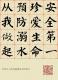 安全第一
预防为主
珍爱生命
从我做起